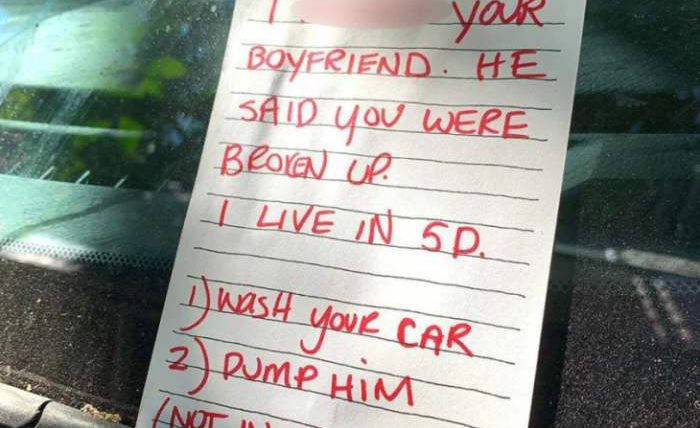 I YOUR
BOYFRIEND. HE
SAID YOU WERE
BROKEN UP.
I LIVE IN 5D.
1) WASH YOUR CAR
2) DUMP HIM
(NOT IN